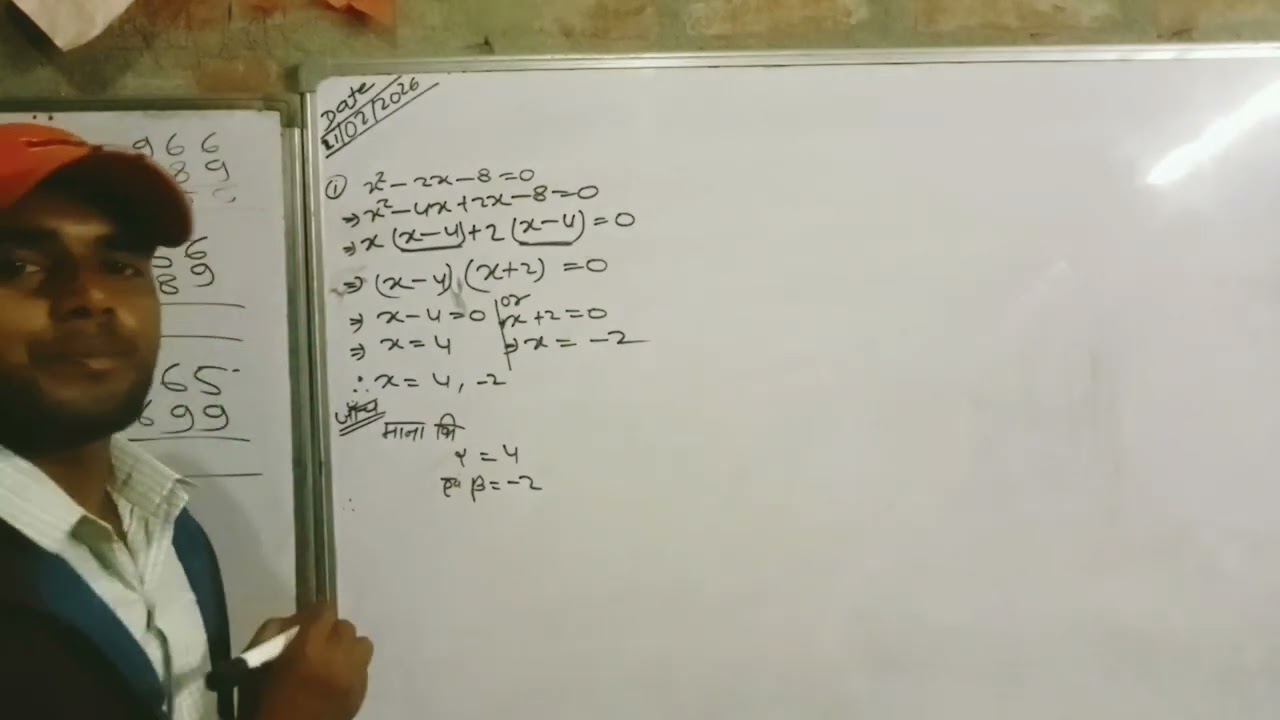 966
89
56
89
65
699
Date
21/02/2026
① x² - 2x - 8 = 0
⇒ x² - 4x + 2x - 8 = 0
⇒ x (x - 4) + 2 (x - 4) = 0
⇒ (x - 4) (x + 2) = 0
⇒ x - 4 = 0 or x + 2 = 0
⇒ x = 4 ⇒ x = -2
∴ x = 4, -2
जाँच
माना कि
α = 4
एवं β = -2
∴